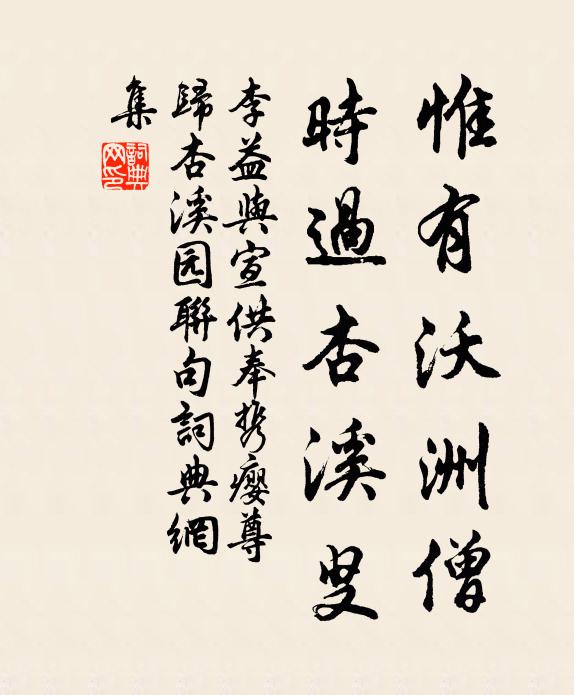 惟有沃洲僧
時過杏溪叟
李益與宣供奉携癭尊
歸杏溪园聯句詞典網
集
詞典網印